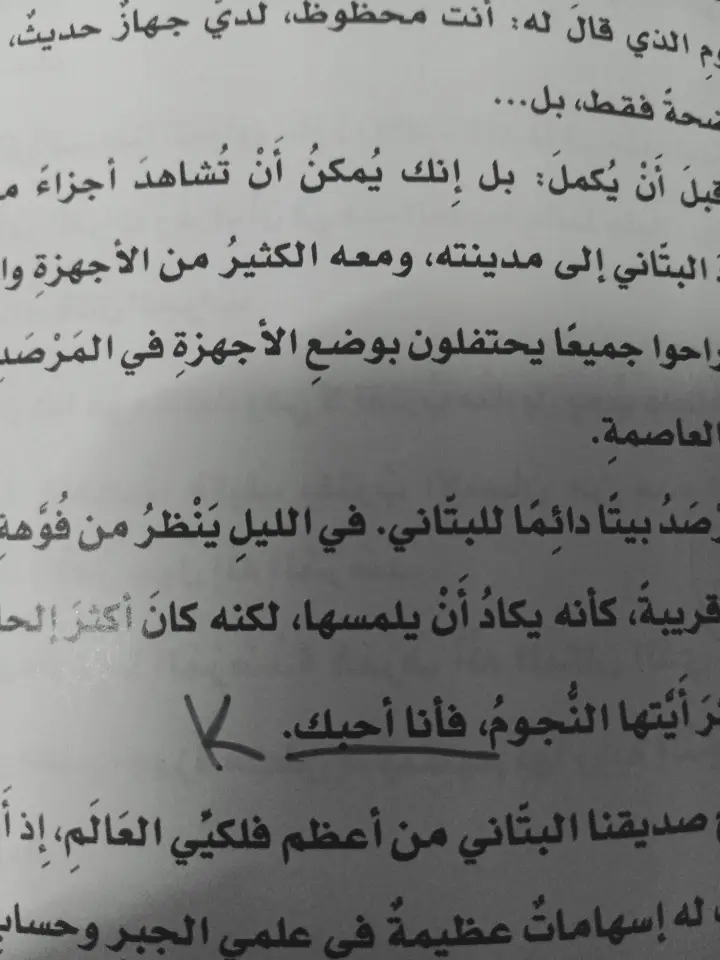 الذي قالَ له: أنت محظوظ، لديَّ جهازٌ حديثٌ،
فقط، بل...
أَنْ يُكملَ: بل إِنك يُمكنُ أَنْ تُشاهدَ أجزاءَ
البتّاني إلى مدينته، ومعه الكثيرُ من الأجهزةِ
جميعًا يحتفلون بوضعِ الأجهزةِ في
العاصمةِ.
بيتًا دائِمًا للبتّاني. في الليلِ يَنْظرُ من فُوَّهةِ
قريبةً، كأنه يكادُ أَنْ يلمسها، لكنه كانَ أكثرَ
أَيَّتها النُّجومُ، فأنا أحبك. K
صديقنا البتّاني من أعظم فلكيِّي العَالَمِ، إِذ
له إسهاماتٌ عظيمةٌ في علمي الجبر